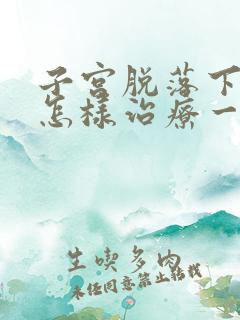 子宫脱落下
怎样治療一
生喫多肉
未经同意禁止转载